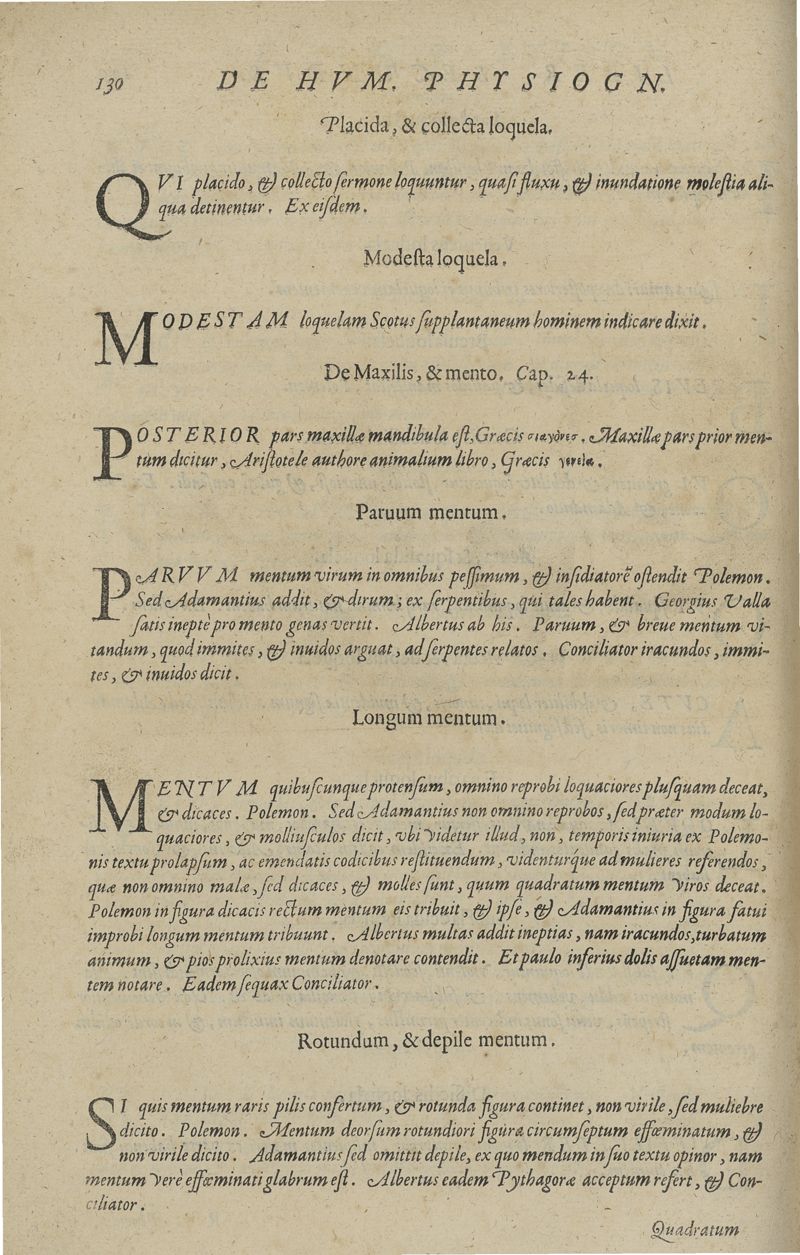 130 DE HVM. PHYSIOGN.
Placida, & collecta loquela.
QVI placido, & collecto ſermone loquuntur, quaſi fluxu, & inundatione moleſtia ali-
qua detinentur. Ex eiſdem.
Modeſta loquela.
MODESTAM loquelam Scotus ſupplantaneum hominem indicare dixit.
De Maxilis, & mento. Cap. 24.
POSTERIOR pars maxillæ mandibula eſt, Græcis σιαγόνες. Maxillæ pars prior men-
tum dicitur, Ariſtotele authore animalium libro, Græcis
Paruum mentum.
PARVVM mentum virum in omnibus peſſimum, & inſidiatorẽ oſtendit Polemon.
Sed Adamantius addit, & dirum; ex ſerpentibus, qui tales habent. Georgius Valla
ſatis ineptè pro mento genas vertit. Albertus ab his. Paruum, & breue mentum vi-
tandum, quod immites, & inuidos arguat, ad ſerpentes relatos. Conciliator iracundos, immi-
tes, & inuidos dicit.
Longum mentum.
MENTVM quibuſcunque protenſum, omnino reprobi loquaciores pluſquam deceat,
& dicaces. Polemon. Sed Adamantius non omnino reprobos, ſed præter modum lo-
quaciores, & molliuſculos dicit, vbi videtur illud, non, temporis iniuria ex Polemo-
nis textu prolapſum, ac emendatis codicibus reſtituendum, videnturque ad mulieres referendos,
quæ non omnino malæ, ſed dicaces, & molles ſunt, quum quadratum mentum viros deceat.
Polemon in figura dicacis rectum mentum eis tribuit, & ipſe, & Adamantius in figura fatui
improbi longum mentum tribuunt. Albertus multas addit ineptias, nam iracundos, turbatum
animum, & pios prolixius mentum denotare contendit. Et paulo inferius dolis aſſuetam men-
tem notare. Eadem ſequax Conciliator.
Rotundum, & depile mentum.
SI quis mentum raris pilis confertum, & rotunda figura continet, non virile, ſed muliebre
dicito. Polemon. Mentum deorſum rotundiori figura circumſeptum effœminatum, &
non virile dicito. Adamantius ſed omittit depile, ex quo mendum in ſuo textu opinor, nam
mentum verè effœminati glabrum eſt. Albertus eadem Pythagoræ acceptum refert, & Con-
ciliator.
Quadratum